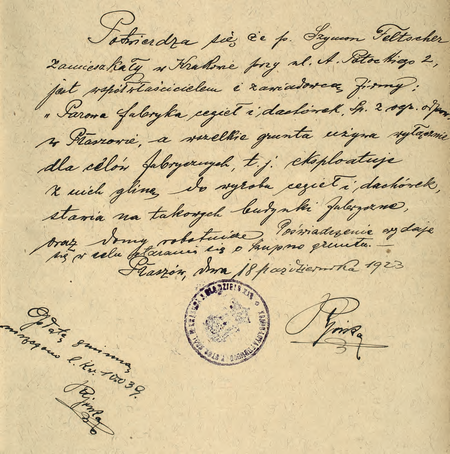 Potwierdza się, że p. Szymon Feltscher
zamieszkały w Krakowie przy ul. A. Potockiego 2,
jest współwłaścicielem i zawiadowcą firmy:
„Parowa fabryka cegieł i dachówek, Sp. z ogr. odpow.
w Płaszowie, a wszelkie grunta używa wyłącznie
dla celów fabrycznych, t. j. eksploatuje
z nich glinę do wyrobu cegieł i dachówek,
stawia na takowych budynki fabryczne,
oraz domy robotnicze. Poświadczenie wydaje
się w celu starania się o kupno gruntu.
Płaszów, dnia 18 października 1923
Opłatę gminną
uiszczono l. kw. 10039.